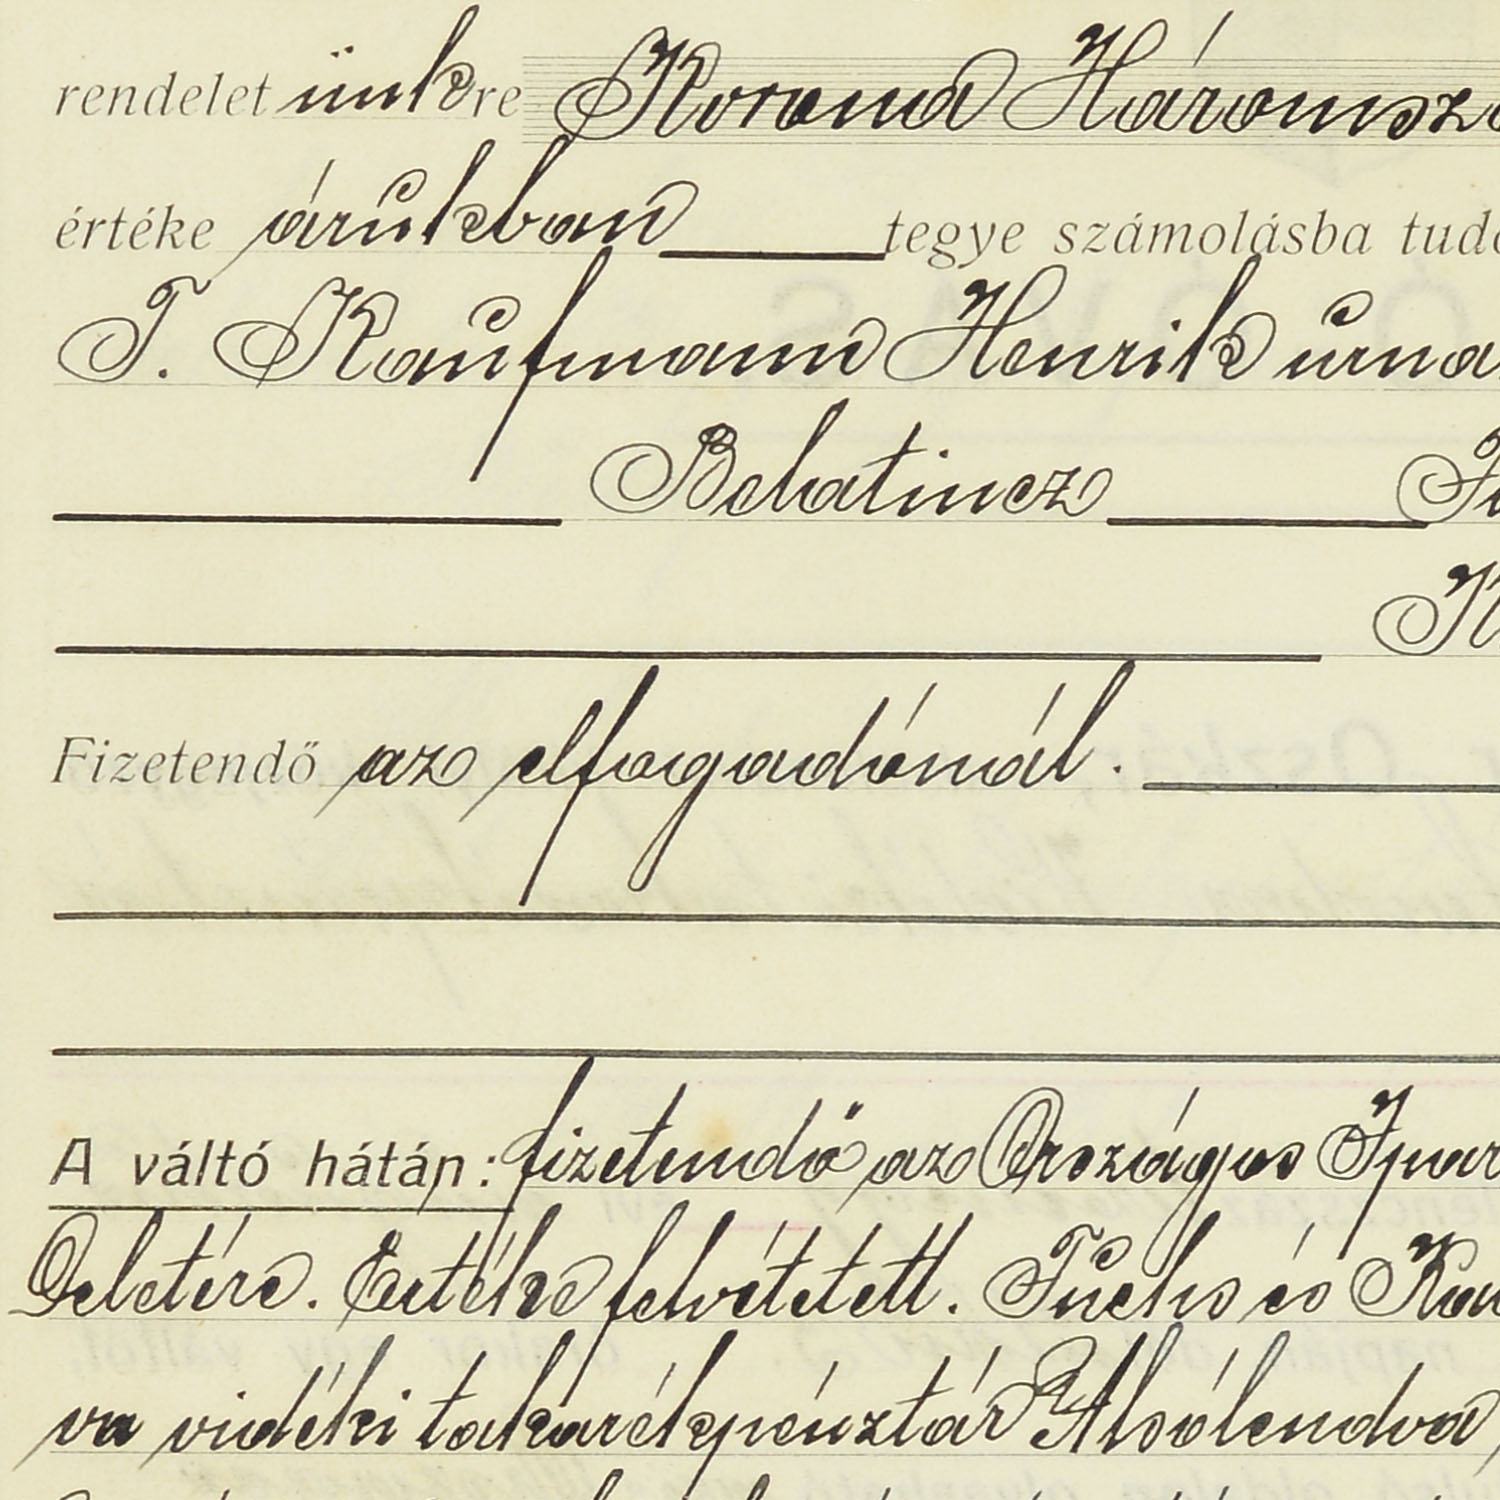 rendelet ünkre Korona Háromsz
értéke árukban tegye számolásba tud
T. Kaufmann Henrik urna
Belatincz
Fizetendő az elfogadónál.
A váltó hátán: fizetendő az Országos Ipar
Deletére. Értéke felvétetett. Fuchs és Kau
va vidéki takarékpénztár Alsólendva